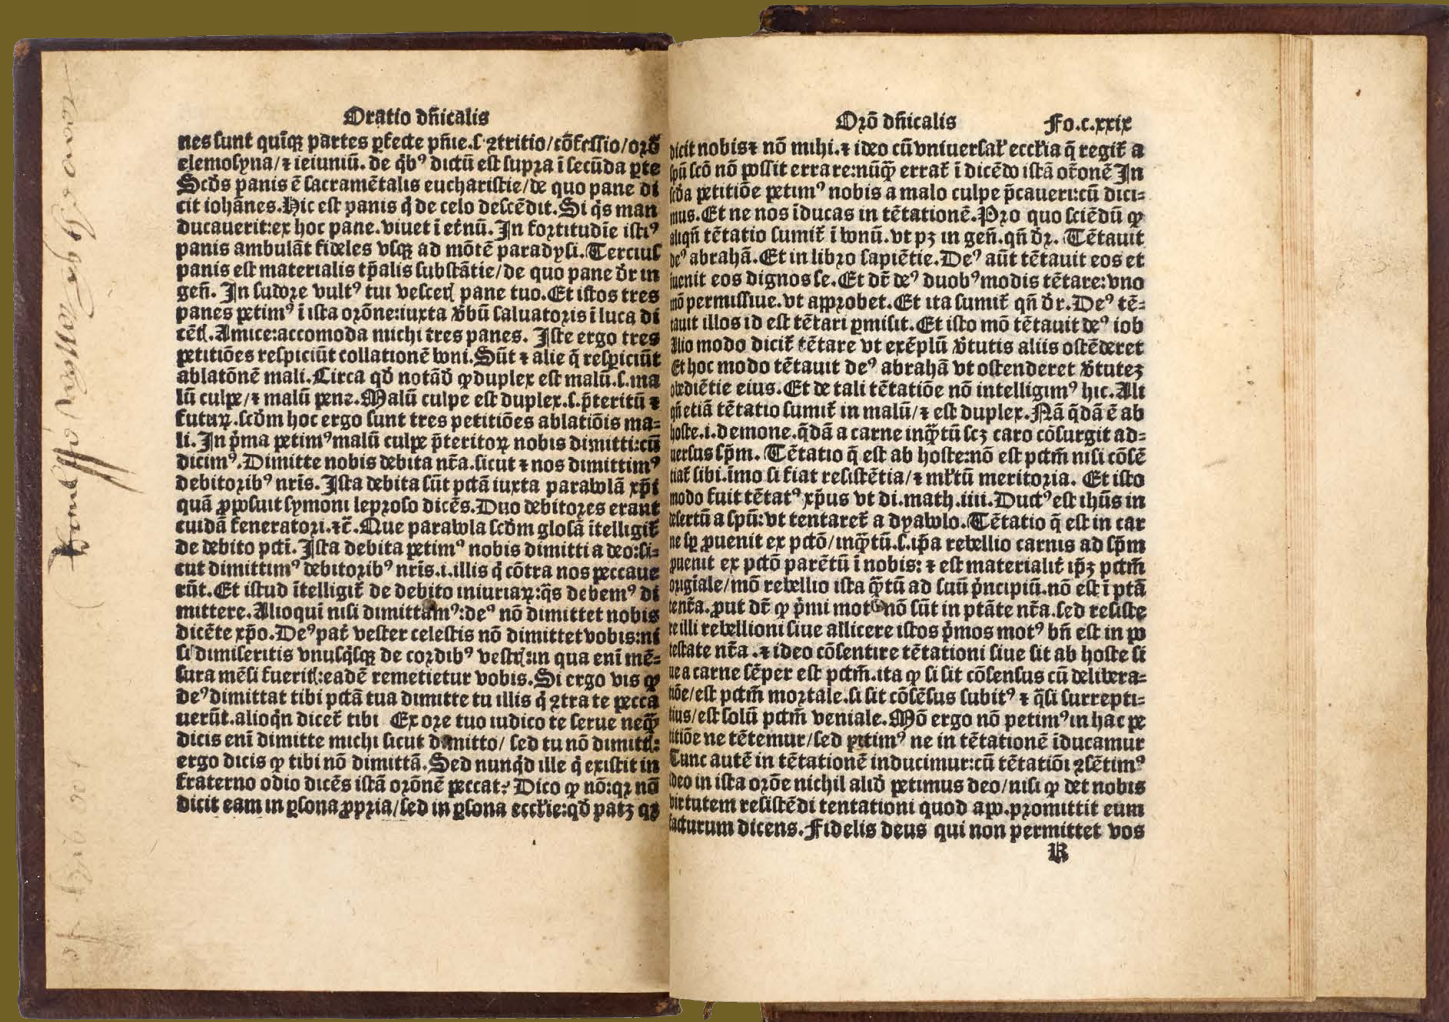 Oratio dñicalis
nes sunt quīqꝫ partes ꝑfecte pñie.s.ꝯtritio/cōfessio/orō
elemosyna/⁊ ieiuniū. de q̄bꝰ dictū est supra ī secūda ꝑte
Scd̄s panis ē sacramētalis eucharistie/de quo pane di
cit iohānes.Hic est panis q̇ de celo descēdit.Si q̇s man
ducauerit:ex hoc pane.viuet ī etnū.In fortitudīe istiꝰ
panis ambulāt fideles vsqꝫ ad mōtē paradysi.Tercius
panis est materialis tp̄alis substātie/de quo pane dr̄ in
geñ. In sudore vultꝰ tui vesceꝝ pane tuo.Et istos tres
panes petimꝰ ī ista orōne:iuxta v̄bū saluatoris ī luca di
cētꝭ.Amice:accomoda michi tres panes. Iste ergo tres
petitiōes respiciūt collationē boni.Sūt ⁊ alie q̄ respiciūt
ablatōnē mali.Circa qd̄ notād̄ ꝙ duplex est malū.s.ma
lū culpe/⁊ malū pene.Malū culpe est duplex.s.p̄teritū ⁊
futuꝝ.scd̄m hoc ergo sunt tres petitiōes ablatiōis ma-
li.In p̄ma petimꝰ malū culpe p̄teritoꝝ nobis dimitti:cū
dicimꝰ.Dimitte nobis debita nr̄a.sicut ⁊ nos dimittimꝰ
debitoribꝰ nr̄is.Ista debita sūt pctā iuxta parabolā xp̄i
quā ꝓposuit symoni leproso dicēs.Duo debitores erant
cuidā feneratori.⁊c̄.Que parabola scd̄m glosā ītelligit̄
de debito pcti.Ista debita petimꝰ nobis dimitti a deo:si-
cut dimittimꝰ debitoribꝰ nr̄is.i.illis q̇ cōtra nos peccaue
rūt.Et istud ītelligit̄ de debito iniuriaꝝ:q̄s debemꝰ di
mittere.Alioqui nisi dimittamꝰ:deꝰ nō dimittet nobis
dicēte xp̄o.Deꝰ pat̄ vester celestis nō dimittet vobis:ni
si dimiseritis vnusq̇sqꝫ de cordibꝰ vestꝝ:in qua enī mē-
sura mēsi fueritꝭ:eadē remetietur vobis.Si ergo vis ꝙ
deꝰ dimittat tibi pctā tua dimitte tu illis q̇ ꝯtra te pecca
uerūt.alioq̇n dicet̄ tibi Ex ore tuo iudico te serue neq̄ꝫ
dicis enī dimitte michi sicut dimitto/ sed tu nō dimittꝭ:
ergo dicis ꝙ tibi nō dimittā.Sed nunqd̄ ille q̇ existit in
fraterno odio dicēs istā orōnē peccat? Dico ꝙ nō:qꝛ nō
dicit eam in ꝑsona ꝓpria/sed in ꝑsona eccl̄ie:qd̄ patꝫ qꝛ
Orō dñicalis Fo.c.xxix
dicit nobis ⁊ nō mihi.⁊ ideo cū vniuersal̄ eccl̄ia q̄ regit̄ a
spū scō nō possit errare:nūq̄ errat̄ ī dicēdo istā orōnē In
scd̄a petitiōe petimꝰ nobis a malo culpe p̄caueri:cū dici-
mus.Et ne nos īducas in tētationē.Pro quo sciēdū ꝙ
aliqñ tētatio sumit̄ ī bonū.vt pꝫ in geñ.qñ dꝛ. Tētauit
deꝰ abrahā.Et in libro sapiētie.Deꝰ aūt tētauit eos et
iuenit eos dignos se.Et dr̄ deꝰ duobꝰ modis tētare:vno
mō permissiue.vt approbet.Et ita sumit̄ qñ dr̄.Deꝰ tē-
tauit illos id est tētari ꝑmisit.Et isto mō tētauit deꝰ iob
Alio modo dicit̄ tētare vt exēplū v̄tutis aliis ostēderet
Et hoc modo tētauit deꝰ abrahā vt ostenderet v̄tuteꝫ
obediētie eius.Et de tali tētatiōe nō intelligimꝰ hic.Ali
qñ etiā tētatio sumit̄ in malū/⁊ est duplex.Nā q̄dā ē ab
hoste.i.demone.q̄dā a carne inq̄tū scꝫ caro cōsurgit ad-
uersus sp̄m. Tētatio q̄ est ab hoste:nō est pctm̄ nisi cōsē
tiat̄ sibi.īmo si fiat resistētia/⁊ ml̄tū meritoria. Et isto
modo fuit tētatꝰ xp̄us vt di.math.iiii.Ductꝰ est ih̄us in
desertū a spū:vt tentaret̄ a dyabolo.Tētatio q̄ est in car
ne sꝑ ꝓuenit ex pctō/inq̄tū.s.ip̄a rebellio carnis ad sp̄m
ꝓuenit ex pctō parētū ī nobis: ⁊ est materialit̄ ip̄ꝫ pctm̄
origīale/mō rebellio ista q̄tū ad suū p̄ncipiū.nō est ī ptā
te nr̄a.ꝓut dr̄ ꝙ p̄mi motꝰ nō sūt in ptāte nr̄a.sed resiste
re illi rebellioni siue allicere istos p̄mos motꝰ bñ est in po
testate nr̄a.⁊ ideo cōsentire tētationi siue sit ab hoste si
ue a carne sēper est pctm̄.ita ꝙ si sit cōsensus cū delibera-
tiōe/est pctm̄ mortale.si sit cōsēsus subitꝰ ⁊ q̄si surrepti-
tius/est solū pctm̄ veniale.Mō ergo nō petimꝰ in hac pe
titiōe ne tētemur/sed petimꝰ ne in tētationē īducamur
Tunc autē in tētationē inducimur:cū tētatiōi ꝯsētimꝰ
ideo in ista orōe nichil aliud petimus deo/nisi ꝙ det nobis
virtutem resistēdi tentationi quod apo.promittit eum
facturum dicens.Fidelis deus qui non permittet vos
R